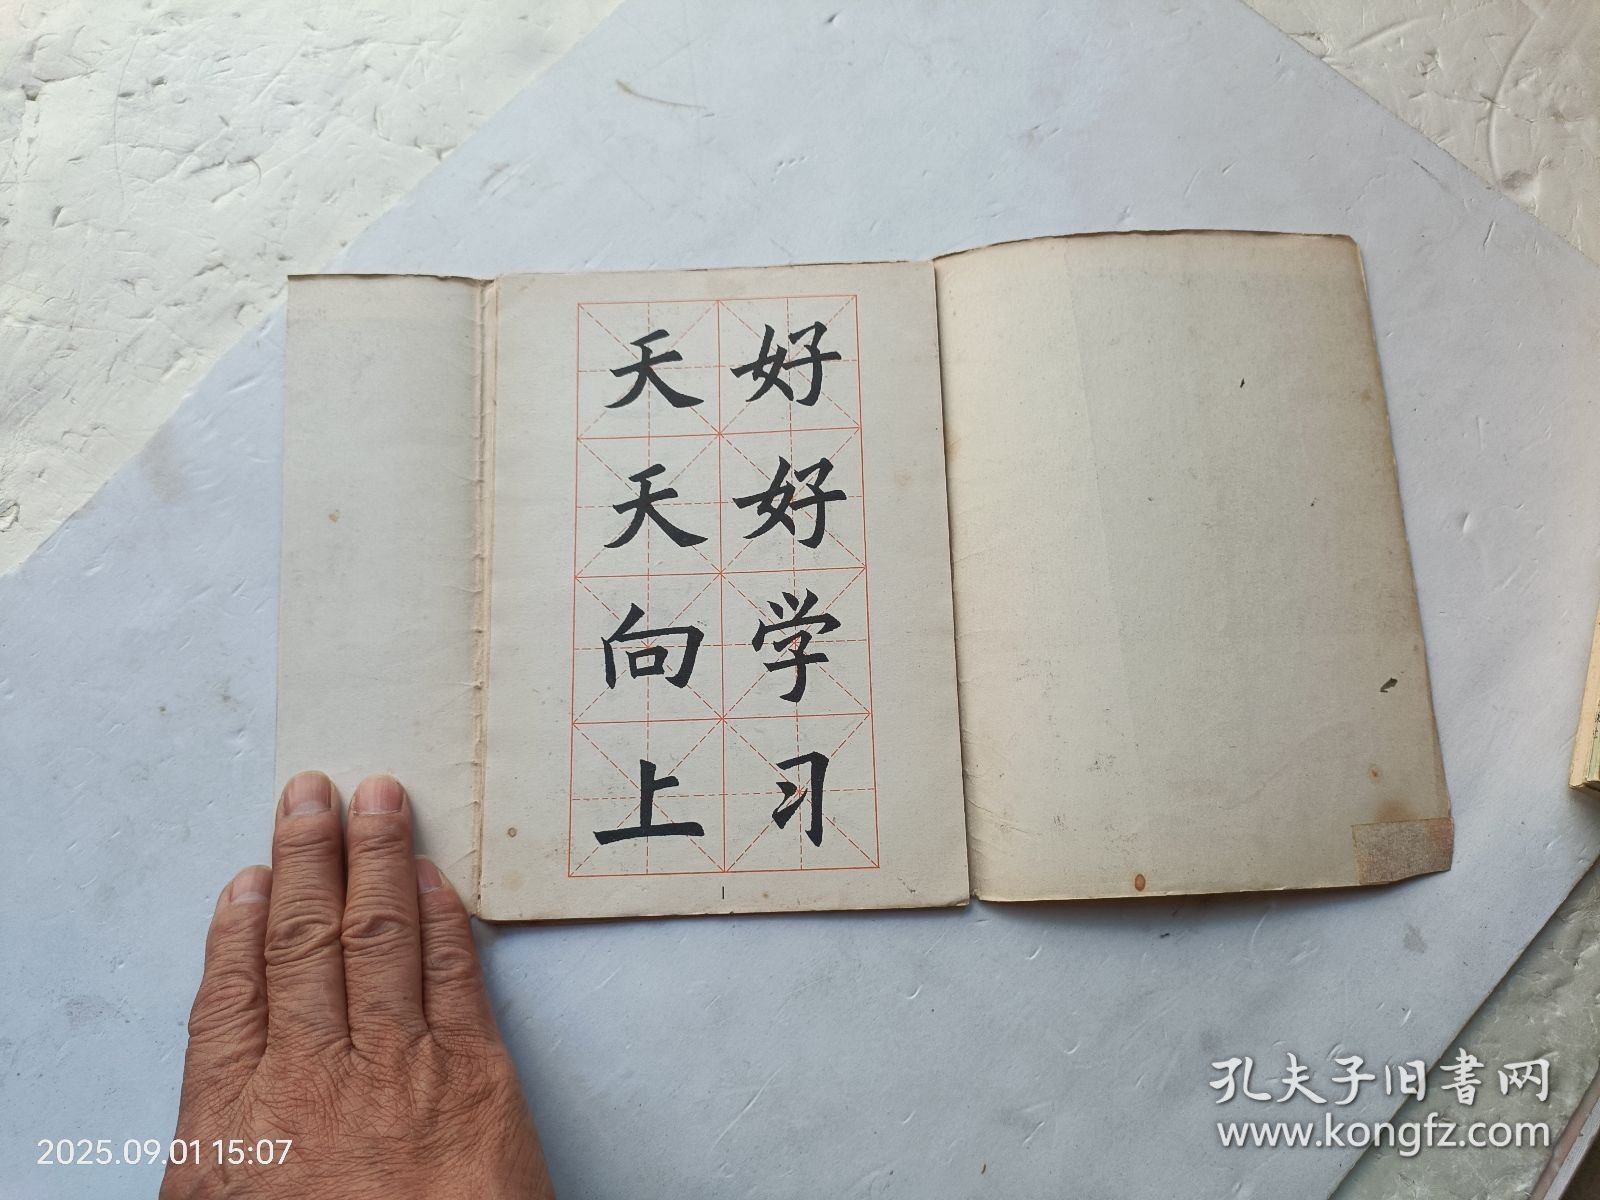 好好学习
天天向上
1
2025.09.01 15:07
孔夫子旧书网
www.kongfz.com